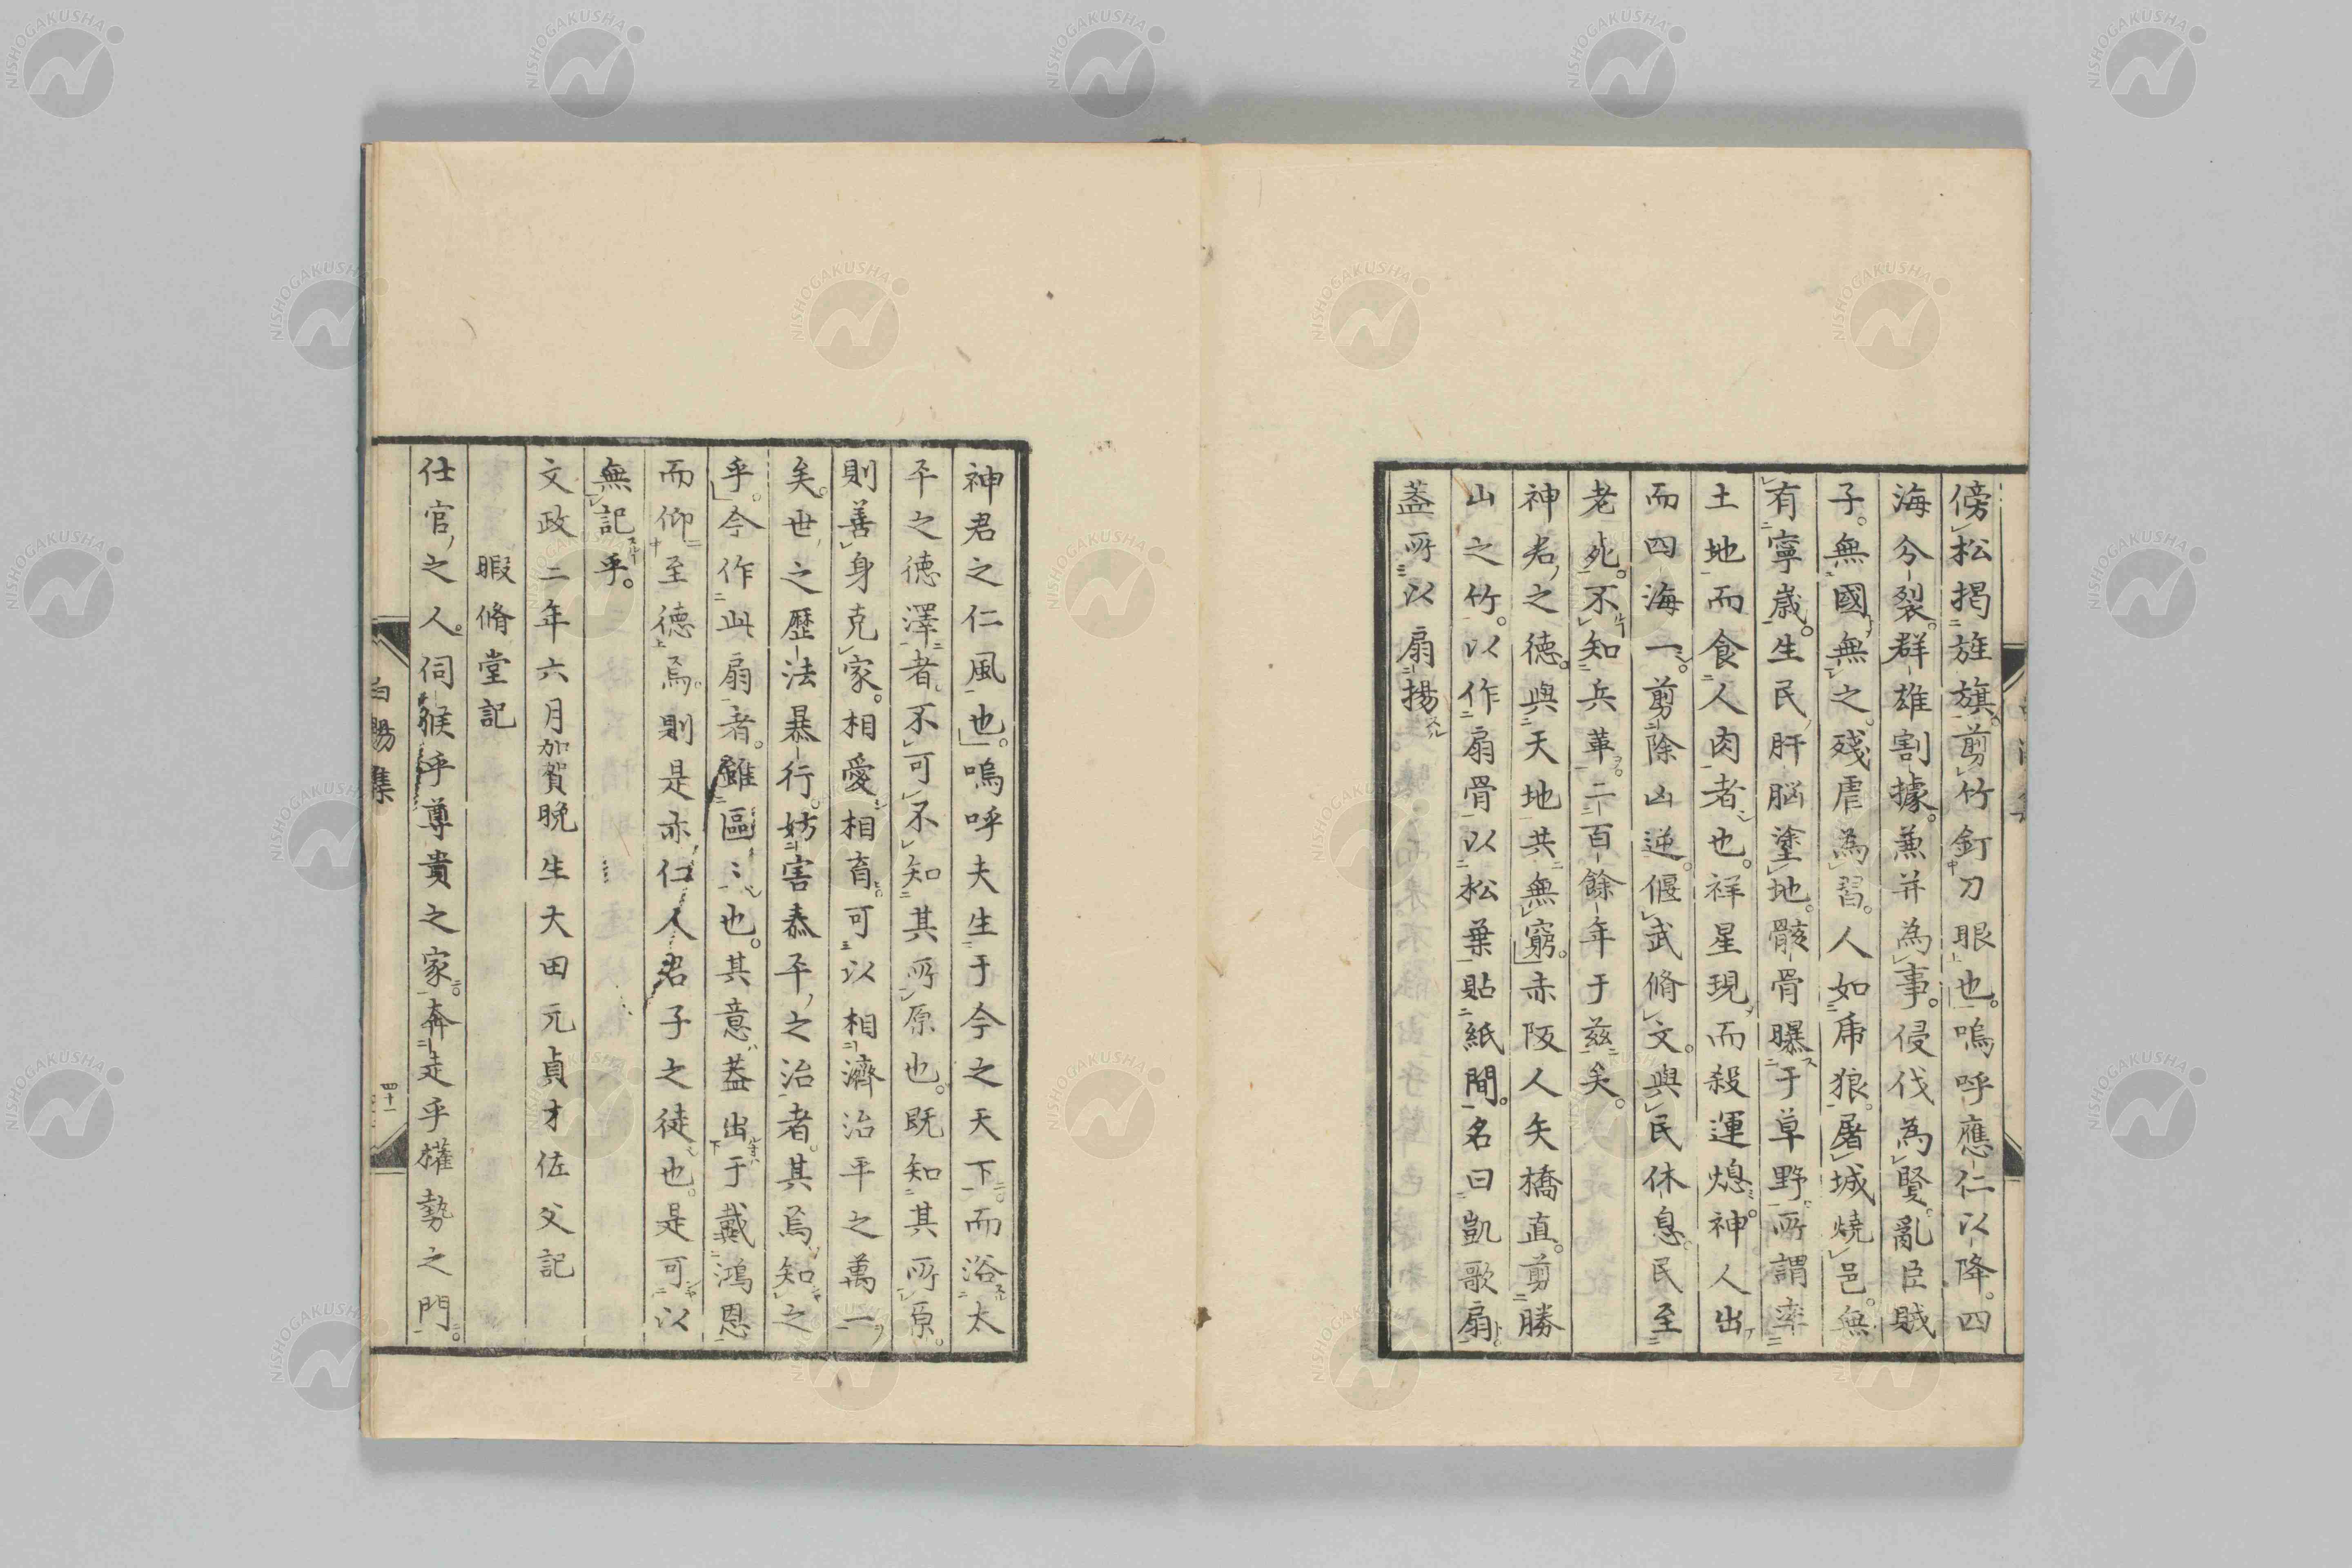 傍松掲旌旗。剪竹釘刀眼也。嗚呼應仁以降。四
海分裂。群雄割據。兼并為事。侵伐為賢。亂臣賊
子。無國無之。殘虐為習。人如虎狼。屠城燒邑。無
有寧歲。生民肝脳塗地。骸骨曝于草野。所謂率
土地而食人肉者也。祥星現而殺運熄。神人出
而四海一。剪除凶逆。偃武脩文。與民休息。民至
老死。不知兵革。二百餘年于茲矣。
神君之德。與天地共無窮。赤阪人矢橋直。剪勝
山之竹。以作扇骨。以松葉貼紙間。名曰凱歌扇。
蓋所以扇揚
神君之仁風也。嗚呼夫生于今之天下。而浴太
平之德澤者。不可不知其所原也。既知其所原。
則善身克家。相愛相育。可以相濟治平之萬一
矣。世之歷法暴行妨害泰平之治者。其焉知之
乎。今作此扇者。雖區〻也。其意蓋出于戴鴻恩
而仰至德焉。則是亦仁人君子之徒也。是可以
無記乎。
文政二年六月加賀晩生大田元貞才佐父記
暇脩堂記
仕官之人。伺候乎尊貴之家。奔走乎權勢之門。
白陽集
四十一
NISHOGAKUSHA